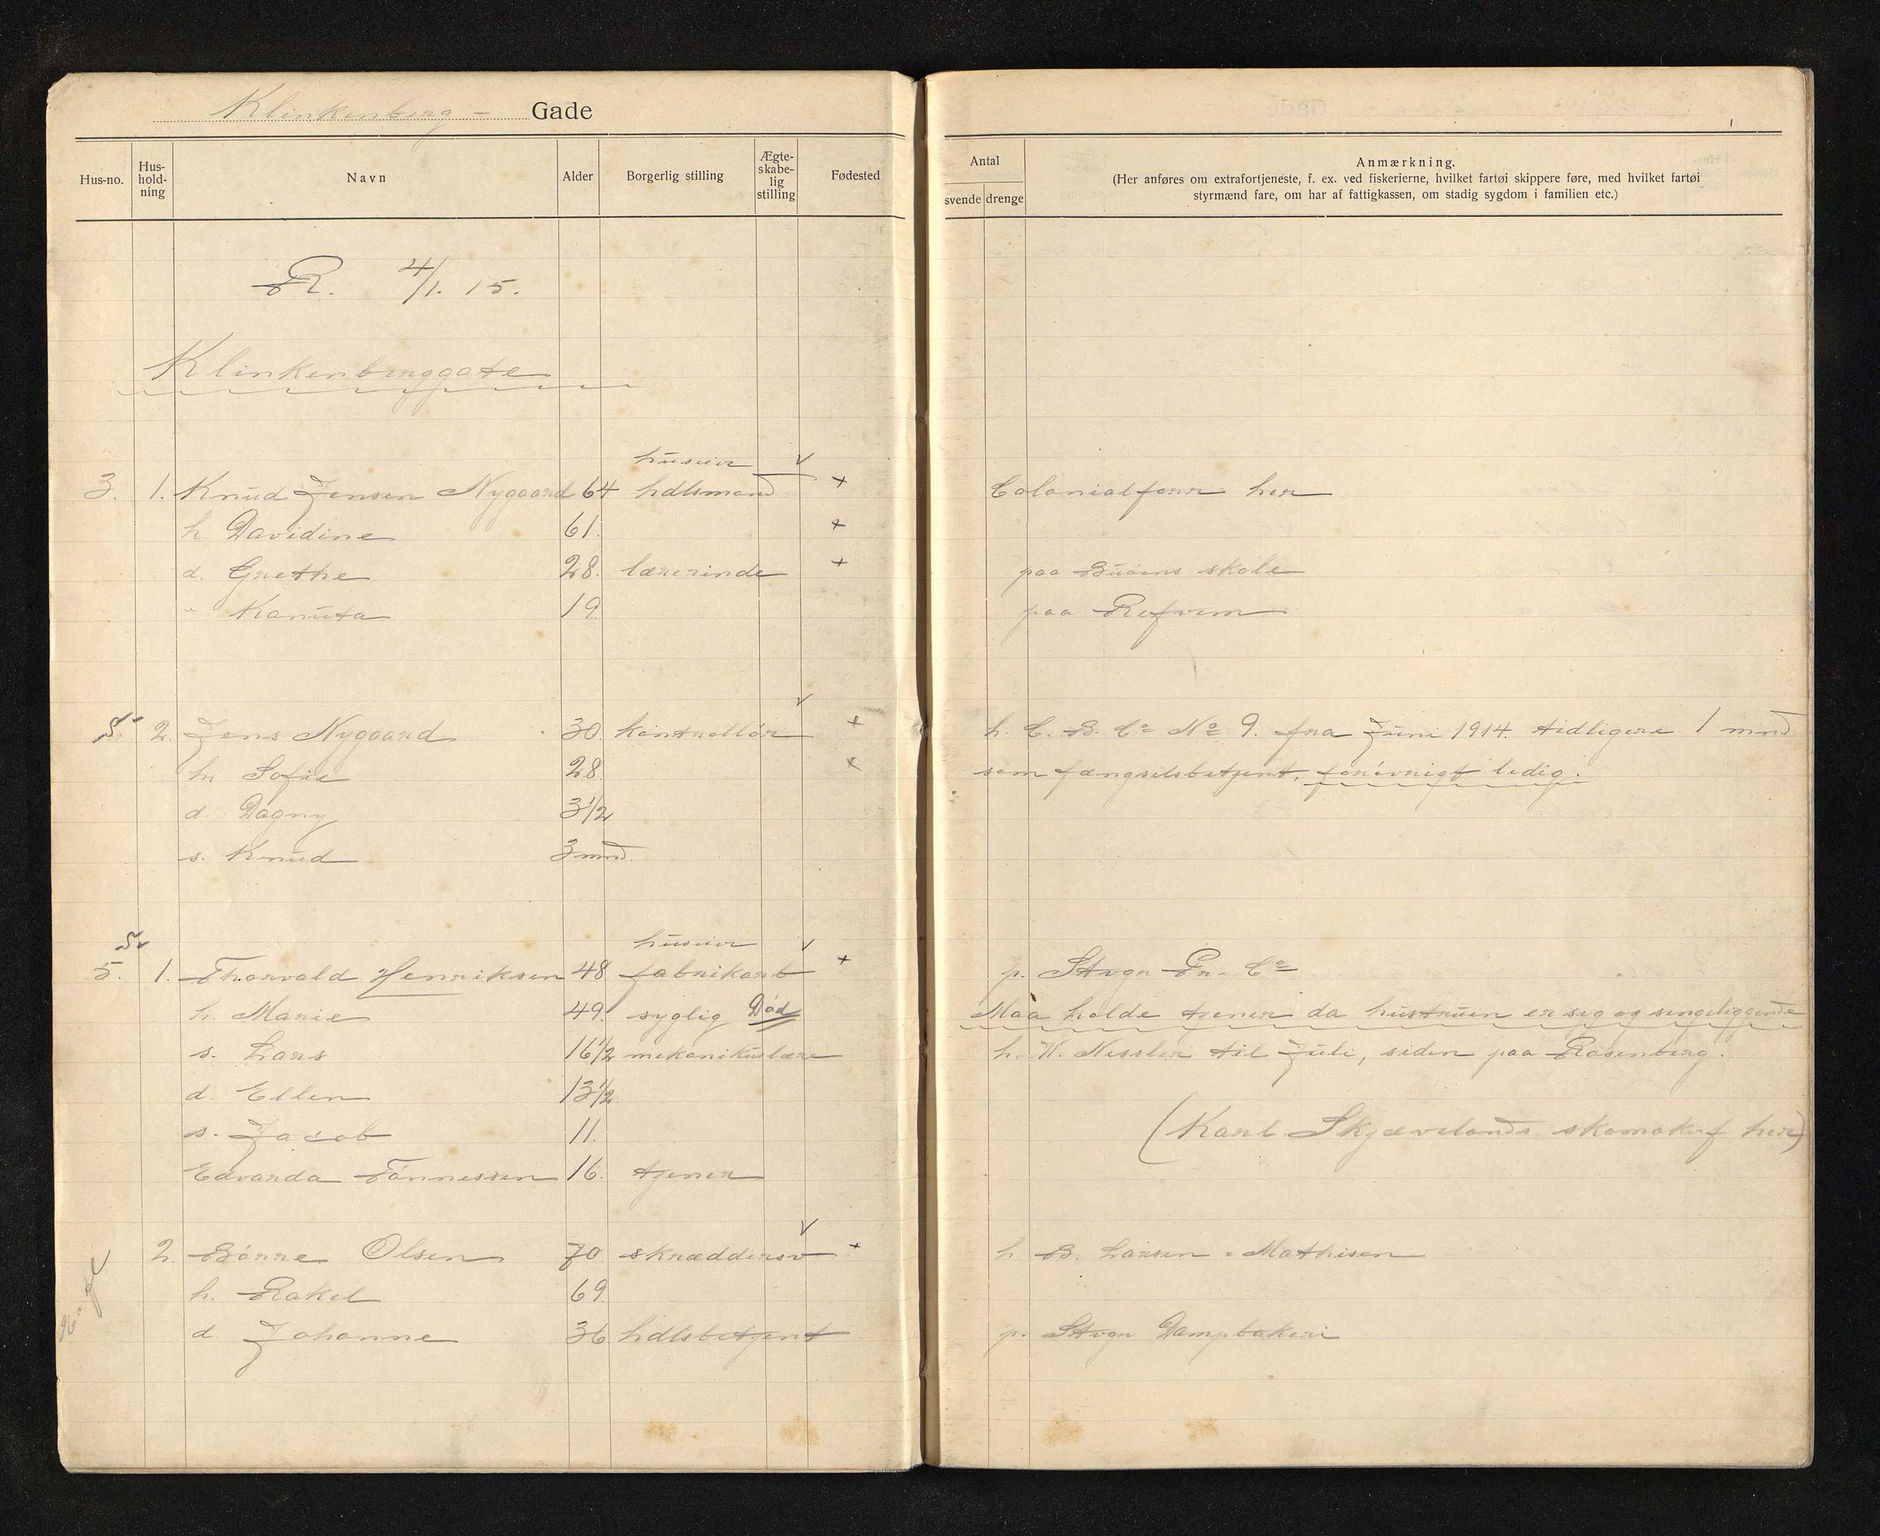 Klinkenberg - Gade
Hus-no. Hus-hold-ning Navn Alder Borgerlig stilling Ægte-skabe-lig stilling Fødested
Antal
svende drenge
Anmærkning.
(Her anføres om extrafortjeneste, f. ex. ved fiskerierne, hvilket fartøi skippere føre, med hvilket fartøi
styrmænd fare, om har af fattigkassen, om stadig sygdom i familien etc.)
R. 4/1. 15.
Klinkenberggate
huseier v
3. 1. Knud Jensen Nygaard 64 hdlsmand + Colonialforr her
h. Davidine 61. +
d. Grethe 28. lærerinde + paa Buøens skole
" Kanuta 19. paa Refvem
v
S. 2. Jens Nygaard 30. kontrollør + h. C. B. Co No 9. fra Juni 1914. tidligere 1 mnd
h. Sofie 28. x som fængselsbetjent, forøvrigt ledig.
d. Dagny 3 1/2
s. Knud 3 mnd.
huseier v
5. 1. Thorvald Henriksen 48 fabrikarb + p. Stvgr Pr. Co
h. Marie 49. syglig Død Maa holde tjener da hustruen er syg og sengeliggende
s. Lars 16 1/2 mekanikerlære h. W. Nessler til Juli, siden paa Rosenberg.
d. Ellen 13 1/2
s. Jacob 11. (Karl Skjævelands skomakerf her)
Edvarda Tönnessen 16. tjener
v
2. Börre Olsen 70 skræddersv + h. B. Larsen & Mathisen
h. Rakel 69.
d. Johanne 36 hdlsbetjent p. Stvgr Dampbakeri